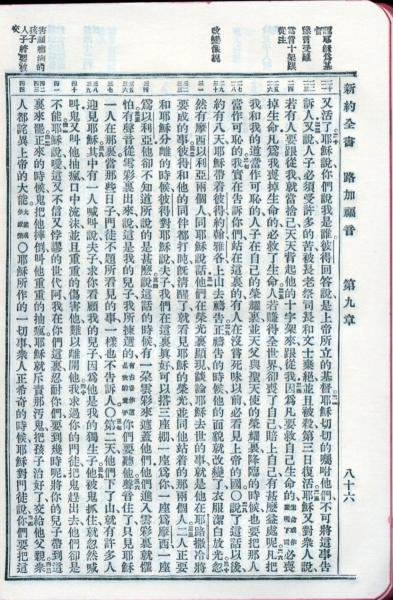 新約全書 路加福音 第九章 八十六
認耶穌為基督
豫言受難
當背十架跟從主
改變像貌
害癲癇病的孩子
人子將要被交
又活了耶穌說你們說我是誰彼得回答說是上帝所立的基督耶穌切切的囑咐他們不可將這事告
訴人又說人子必須受許多的苦被長老祭司長和文士棄絕並且被殺第三日復活耶穌又對眾人說
若有人要跟從我就當捨己天天背起他的十字架來跟從我因為凡要救自己生命的必喪
掉生命凡為我喪掉生命的必救了生命人若賺得全世界卻喪了自己賠上自己有甚麼益處呢凡把
我和我的道當作可恥的人子在自己的榮耀裏並天父與聖天使的榮耀裏降臨的時候也要把那人
當作可恥的我實在告訴你們站在這裏的有人在沒嘗死味以前必看見上帝的國〇說了這話以後
約有八天耶穌帶着彼得約翰雅各上山去禱告正禱告的時候他的面貌就改變了衣服潔白放光忽
然有摩西以利亞兩個人同耶穌說話他們在榮光裏顯現談論耶穌去世的事就是他在耶路撒冷將
要成的事彼得和他的同伴都打盹既清醒了就看見耶穌的榮光並同他站着的那兩個人二人正要
和耶穌分離的時候彼得對耶穌說夫子我們在這裏真好可以搭三座棚一座為你一座為摩西一座
為以利亞他卻不知道所說的是甚麼說這話的時候有一朵雲彩來遮蓋他們他們進入雲彩裏就懼
怕有聲音從雲彩裏出來說這是我的兒子我所揀選的你們要聽他聲音住了只見耶穌
一人在那裏當那些日子門徒不題所看見的事一樣也不告訴人〇第二天他們下了山就有許多人
迎見耶穌其中有一人喊叫說夫子求你看顧我的兒子因為他是我的獨生子他被鬼抓住就忽然喊
叫鬼又叫他抽瘋口中流沫並且重重的傷害他難以離開他我求過你的門徒把鬼趕出去他們卻是
不能耶穌說噯這又不信又悖謬的世代阿我在你們這裏忍耐你們要到幾時呢將你的兒子帶到這
裏來罷正來的時候鬼把他摔倒叫他重重的抽瘋耶穌就斥責那污鬼把孩子治好了交給他父親眾
人都詫異上帝的大能〇耶穌所作的一切事眾人正希奇的時候耶穌對門徒說你們要把這